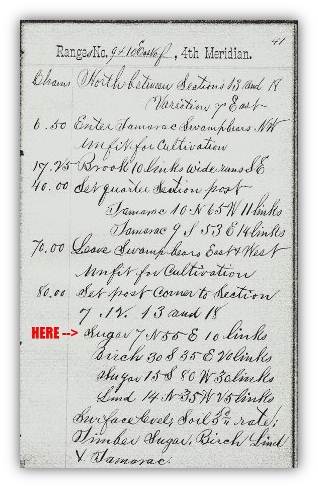 41
Ranges No. 9 & 10 East of, 4th Meridian.
Chains North between Sections 13 and 18
Variation 7 East
6.50 Enter Tamarac Swamp bears NW
Unfit for Cultivation
19.25 Brook 10 links wide runs SE
40.00 Set quarter Section post
Tamarac 10 N 65 W 11 links
Tamarac 9 S 53 E 14 links
70.00 Leave Swamp bears East & West
Unfit for Cultivation
80.00 Set post Corner to Section
7. 12. 13 and 18
HERE --> Sugar 7 N 55 E 10 links
Birch 30 S 35 E 20 links
Sugar 15 S 80 W 30 links
Lind 14 N 35 W 25 links
Surface level; Soil 3rd rate;
Timber Sugar, Birch Lind
& Tamarac.